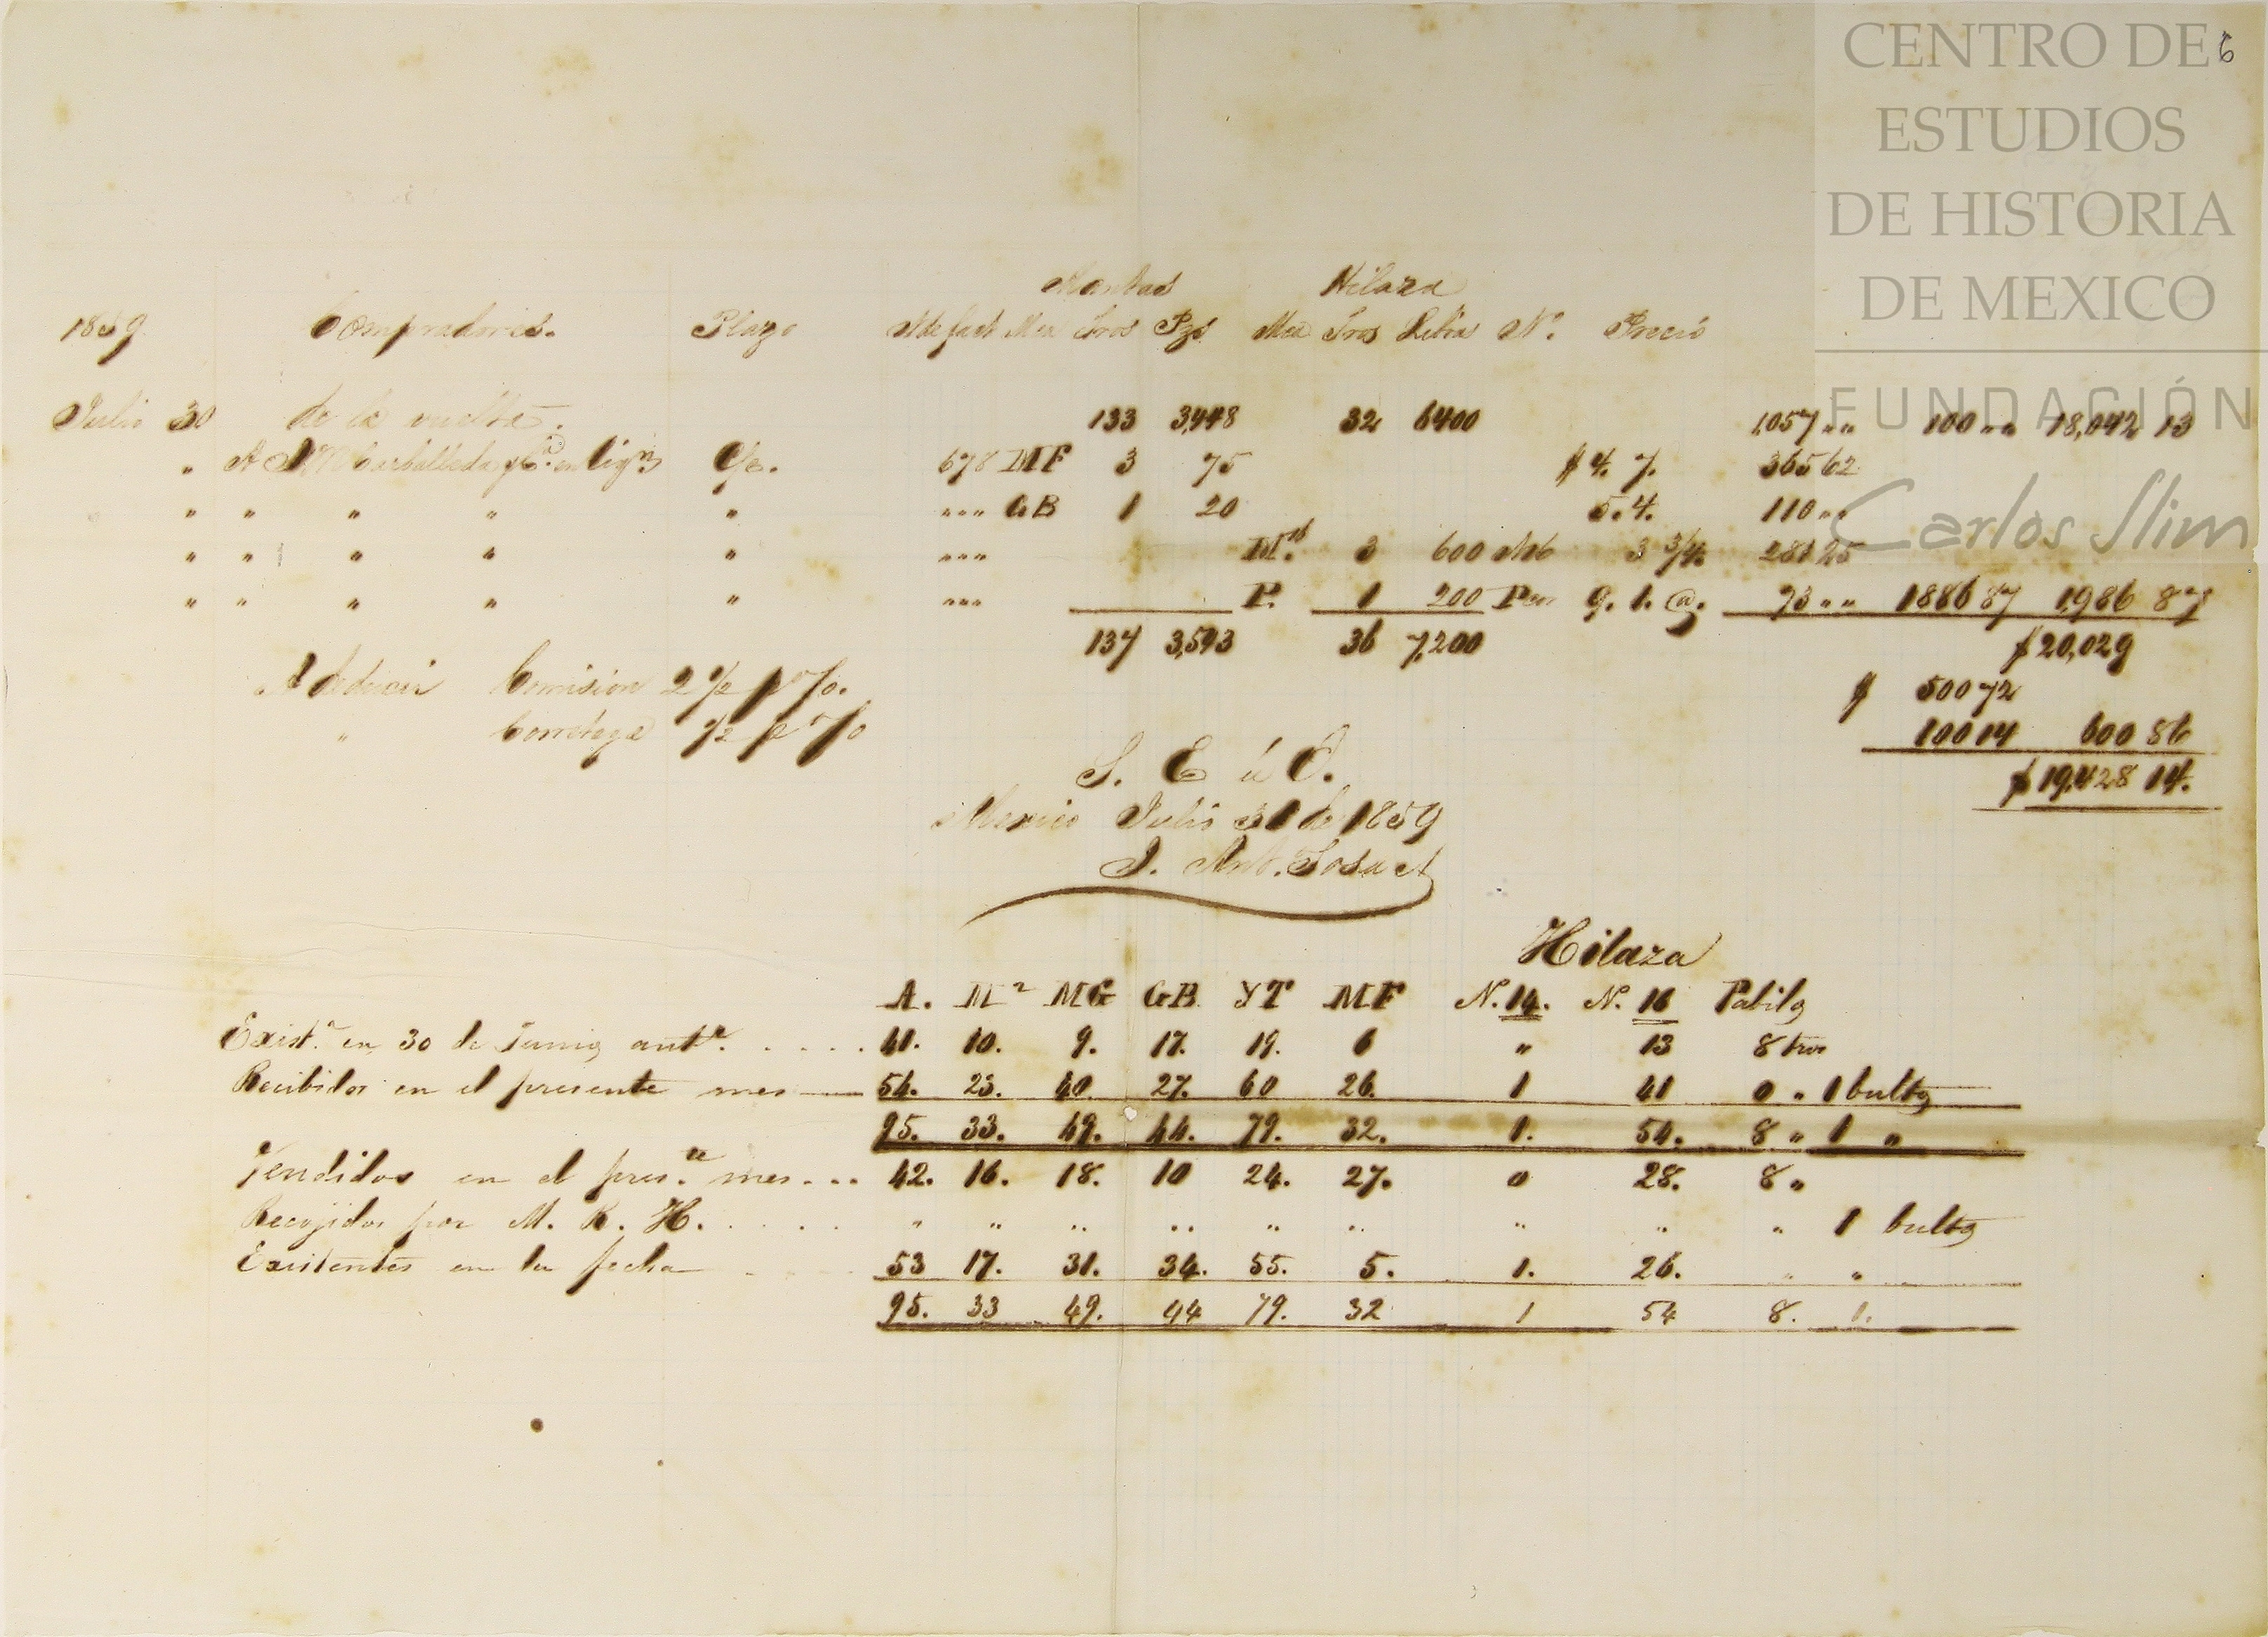 CENTRO DE
ESTUDIOS
DE HISTORIA
DE MEXICO
FUNDACIÓN
Carlos Slim
6
Mantas Hilaza
1859 Compradores. Plazo N de fact Mca Tros Pzs Mca Tros Libs N.º Precio
Julio 30 de la vuelta. 133 3,448 32 6400 1,057 „ „ 100 „ „ 18,042 13
„ A Carballeda y C.ª en liq.n C/c. 678 MF 3 75 $ 4. 7. 365 62
„ „ „ „ „ „ „ „ GB 1 20 5. 4. 110 „ „
„ „ „ „ „ „ „ „ M. 3 600 N16 3 3/4. 281 25
„ „ „ „ „ „ „ „ P. 1 200 9. 1. @. 73 „ „ 1886 87 1,986 87
137 3,543 36 7,200 $ 20,029
A deducir Comision 2 1/2 p %. $ 500 72
„ Corretage 1/2 p % 100 14 600 86
$ 19,428 14.
S. E ú O.
Mexico Julio 31 de 1859
J. Ant. Sosa
Hilaza
A. M MG GB YT MF N. 14. N. 16 Pabilo
Exist.ª en 30 de Junio ant.r . . . . . 41. 10. 9. 17. 19. 6 „ 13 8 tros
Recibidos en el presente mes 54. 23. 40. 27. 60 26. 1 41 0 „ 1 bulto
95. 33. 49. 44. 79. 32. 1. 54. 8 „ 1 „
Vendidos en el pres.te mes . . . 42. 16. 18. 10 24. 27. 0 28. 8 „
Recojidos por M. R. H. . . . . „ „ „ „ „ „ „ „ „ 1 bulto
Existentes en la fecha 53 17. 31. 34. 55. 5. 1. 26. „ „
95. 33 49. 44 79. 32 1 54 8. 1.